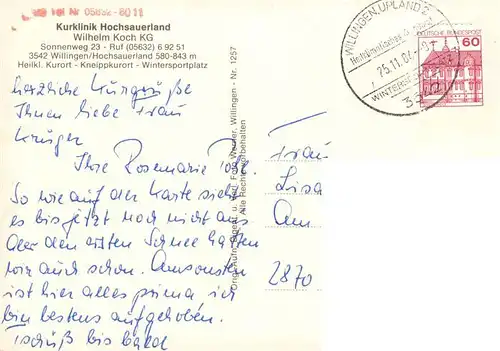 Nr 05632-6011
Kurklinik Hochsauerland
Wilhelm Koch KG
Sonnenweg 23 - Ruf (05632) 6 92 51
3542 Willingen/Hochsauerland 580-843 m
Heilkl. Kurort - Kneippkurort - Wintersportplatz
herzliche Kurgrüße
Ihnen liebe Frau
Krüger
Ihre Rosemarie
So wie auf der Karte sieht
es bis jetzt noch nicht aus
Aber den ersten Schnee hatten
wir auch schon. Ansonsten
ist hier alles prima ich
bin bestens aufgehoben.
tschüß bis bald
Orig.-Aufn., Eigent. u. Verl. Foto Werner, Willingen - Nr. 1257
Alle Rechte vorbehalten
Frau
Lisa
Am
2870
WILLINGEN, UPLAND 2
Heilklimatischer Kurort
25.11.87
WINTERS
DEUTSCHE BUNDESPOST
60